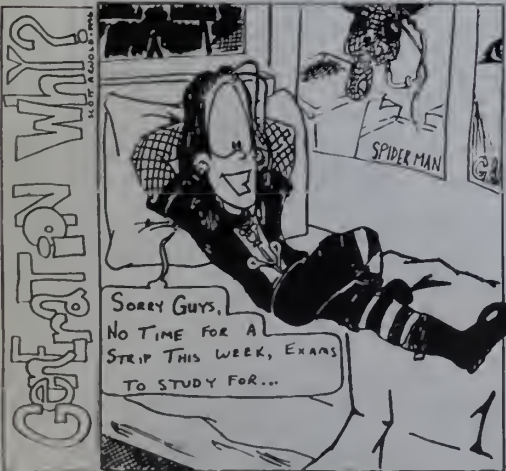 GENERATION WHY?
SCOTT ARNOLD · 1996
SPIDERMAN
SORRY GUYS,
NO TIME FOR A
STRIP THIS WEEK, EXAMS
TO STUDY FOR...